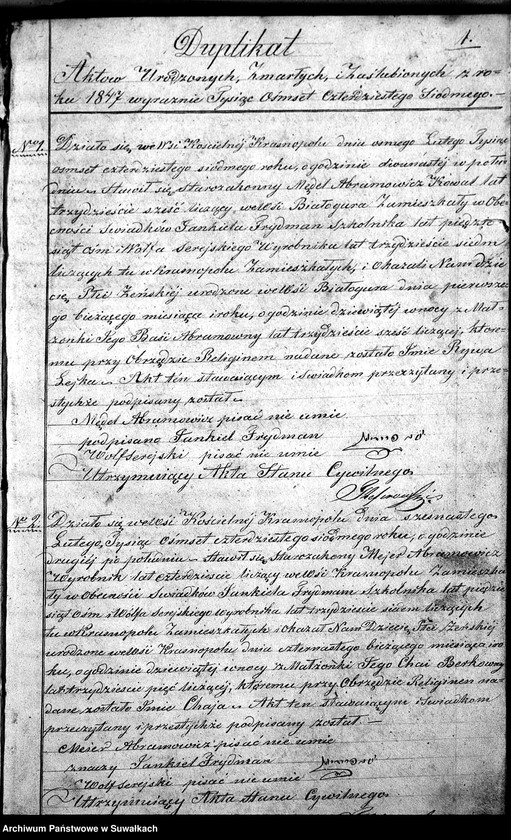 1.
Duplikat
Aktow Urodzonych, Zmarłych, i Zaslubionych z ro-
ku 1847 wyraznie Tysiąc Ośmset Czterdziestego Siodmego.
No 1.
Działo się we Wsi Kościelnej Krasnopolu dnia osmego Lutego Tysiąc
osmset czterdziestego siodmego roku, o godzinie dwunastej w połu
dnie. Stawił się starozakonny Abramowicz Kowal lat
trzydzieście sześć liczący, we Wsi Białogura Zamieszkały w Obe
cności Swiadków Jankiela Frydman Szkolnika lat piędzie
siąt ośm i Wolfa Serejskiego Wyrobnika lat trzydzieście siedm
liczących tu w Krasnopolu Zamieszkałych, i Okazali Nam dzie
cię Płci Żeńskiej urodzone we Wsi Białogura dnia pierwsze
go bieżącego miesiąca i roku, o godzinie dziewiątej w nocy z Mał
żonki Jego Basi Abramowny lat trzydzieście sześć liczącej, które
mu przy Obrzędzie Religinem nadane zostało Imie
Lejka. Akt ten stawaiącym i swiadkom przeczytany i prze-
stychże podpisany został.
Abramowicz pisać nie umie
podpisano Jankiel Frydman
Wolf Serejski pisać nie umie
Utrzymuiący Akta Stanu Cywilnego
No 2.
Działo się we Wsi Kościelnej Krasnopolu dnia szesnastego
Lutego, Tysiąc Ośmset czterdziestego siodmego roku, o godzinie
drugiej po południu. Stawił się Starozakony Mejer Abramowicz
Wyrobnik lat czterdzieście liczący we Wsi Krasnopolu Zamieszka
ły w Obecności Swiadków Jankiela Frydman Szkolnika lat piędzie
siąt ośm i Wolfa Serejskiego wyrobnika lat trzydzieście siedm liczących
tu w Krasnopolu Zamieszkałych i Okazał Nam Dziecię, Płci Żeńskiej
urodzone we Wsi Krasnopolu dnia czternastego bieżącego miesiąca i ro
ku, o godzinie dziewiątej w nocy z Małżonki Jego Chai Berkowny
lat trzydzieście pięć liczącej, któremu przy Obrzędzie Religinem na
dane zostało Imie Chaja. Akt ten stawaiącym i swiadkom
przeczytany i przestychże podpisany został.
Mejer Abramowicz pisać nie umie
znaczy Jankiel Frydman
Wolf Serejski pisać nie umie
Utrzymuiący Akta Stanu Cywilnego
Archiwum Państwowe w Suwałkach